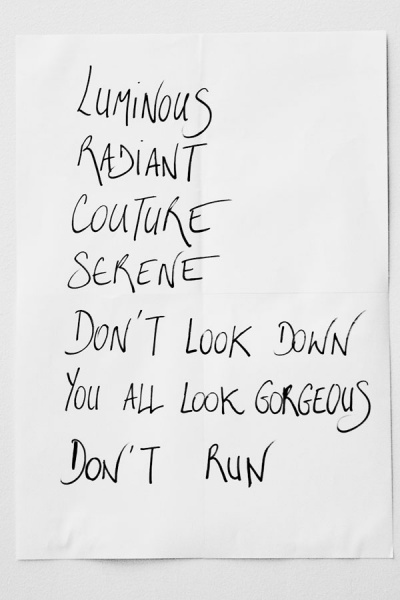 LUMiNOUS
RADiANT
COUTURE
SERENE
DON'T LOOK DOWN
YOU ALL LOOK GORGEOUS
DON'T RUN